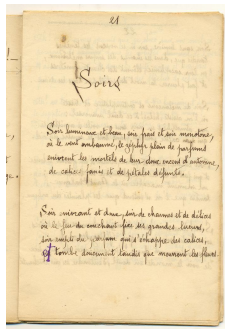 21
Soirs
Soir lumineux et beau, soir frais et soir monotone,
où le vent embaumé, le zéphyr plein de parfums
enivrent les mortels de leur doux encens d'automne,
de calices fanés et de pétales défunts.
Soir enivrant et doux, soir de charmes et de délices
où le feu du couchant fixe ses grandes lueurs,
soir empli du parfum qui s'échappe des calices,
et tombe doucement tandis que meurent les fleurs